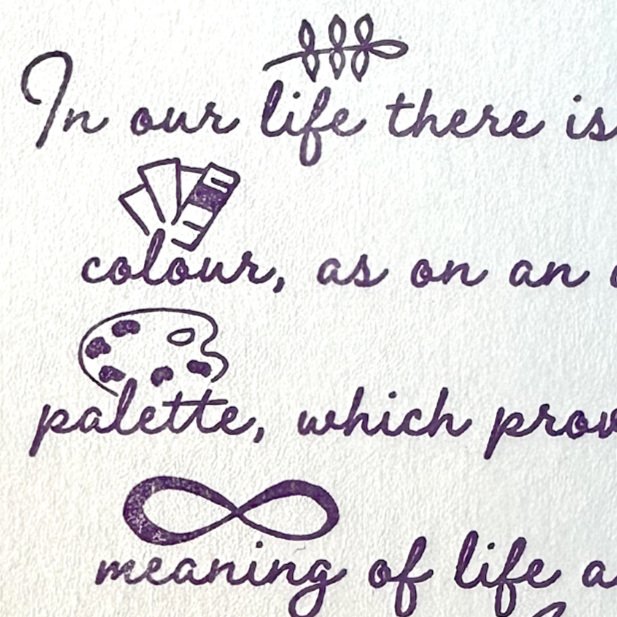 In our life there is
colour, as on an
palette, which prov
meaning of life a